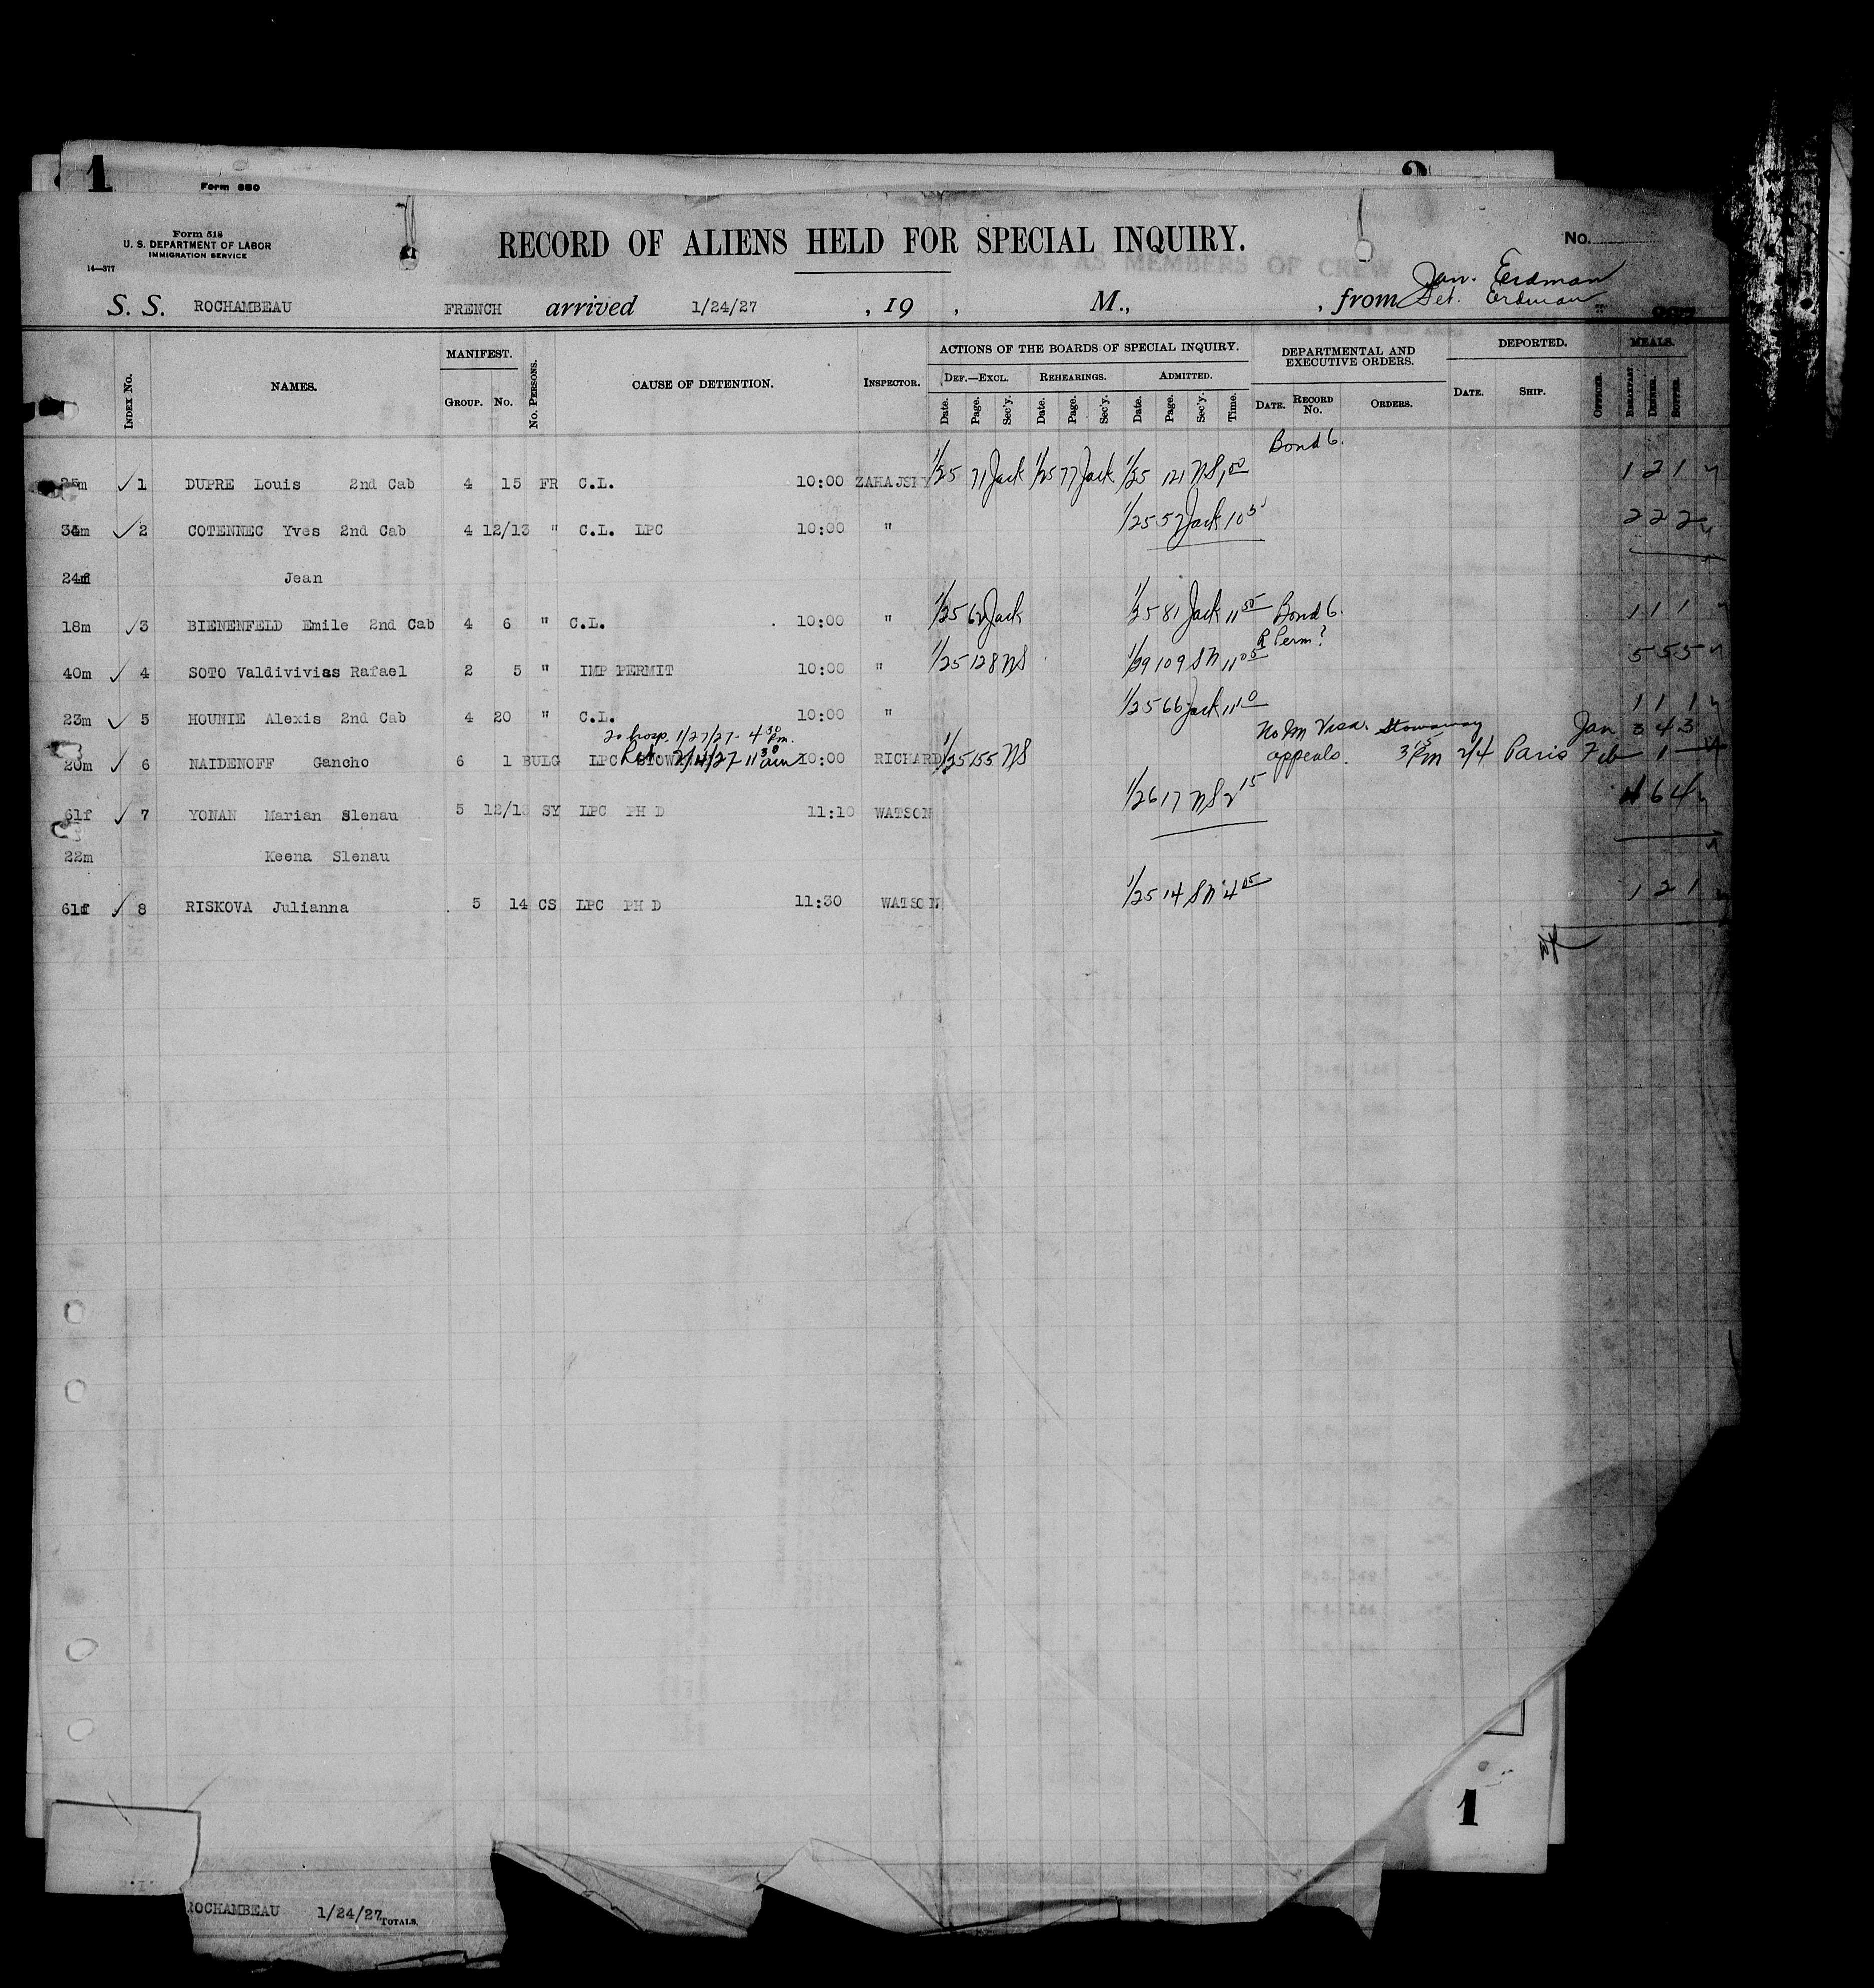 1
Form 630
2
Form 518
U. S. DEPARTMENT OF LABOR
IMMIGRATION SERVICE
14—377
RECORD OF ALIENS HELD FOR SPECIAL INQUIRY.
No.
AS MEMBERS OF CREW
Jan. Erdman
S. S. ROCHAMBEAU FRENCH arrived 1/24/27 , 19 , M., , from Det. Erdman
Index No. NAMES. MANIFEST. Group. No. No. Persons. CAUSE OF DETENTION. Inspector. ACTIONS OF THE BOARDS OF SPECIAL INQUIRY. Def.—Excl. Date. Page. Sec'y. Rehearings. Date. Page. Sec'y. Admitted. Date. Page. Sec'y. Time. DEPARTMENTAL AND EXECUTIVE ORDERS. Date. Record No. Orders. DEPORTED. Date. Ship. Officer. MEALS. Breakfast. Dinner. Supper.
Bond 6.
1 DUPRE Louis 2nd Cab 4 15 FR C.L. 10:00 ZAHAJSKY 1/25 71 Jack 1/25 77 Jack 1/25 121 NS 1 00 1 2 1
34m 2 COTENNEC Yves 2nd Cab 4 12/13 " C.L. LPC 10:00 " 1/25 57 Jack 10 2 2 2
24m Jean
18m 3 BIENENFELD Emile 2nd Cab 4 6 " C.L. 10:00 " 1/25 62 Jack 1/25 81 Jack 11 55 Bond 6. 1 1 1
R Perm?
40m 4 SOTO Valdivivias Rafael 2 5 " IMP PERMIT 10:00 " 1/25 128 NS 1/29 109 SN 11 05 5 5 5
23m 5 HOUNIE Alexis 2nd Cab 4 20 " C.L. 10:00 " 1/25 66 Jack 11 10 1 1 1
To hosp. 1/27/27 - 4 30 Pm. No Im Visa. Stowaway Jan 3 4 3
20m 6 NAIDENOFF Gancho 6 1 BULG LPC STOWAWAY Ret. 2/4/27 - 11 30 am 10:00 RICHARD 1/25 155 NS appeals. 3 15 Pm 2/4 Paris Feb 1
61f 7 YONAN Marian Slenau 5 12/13 SY LPC PH D 11:10 WATSON 1/26 17 NS 2 15 4 6 4
22m Keena Slenau
61f 8 RISKOVA Julianna 5 14 CS LPC PH D 11:30 WATSON 1/25 14 SN 4 05 1 2 1
1
ROCHAMBEAU 1/24/27 Totals.